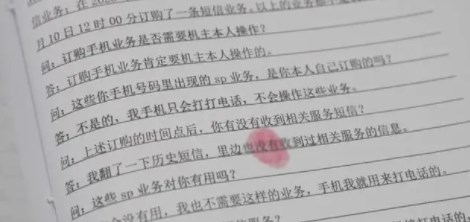 信业务；在202
月10日12时00分订购了一条短信业务。以上的业务都不是
问：订购手机业务是否需要机主本人操作？
答：订购手机业务肯定要机主本人操作的。
问：这些你手机号码里出现的sp业务，是你本人自己订购的吗？
答：不是的，我手机只会打打电话，不会操作这些业务。
问：上述订购的时间点后，你有没有收到相关服务短信？
答：我翻了一下历史短信，里边也没有收到过相关服务的信息。
问：这些sp业务对你有用吗？
没有用，我也不需要这样的业务，手机我就用来打电话的。